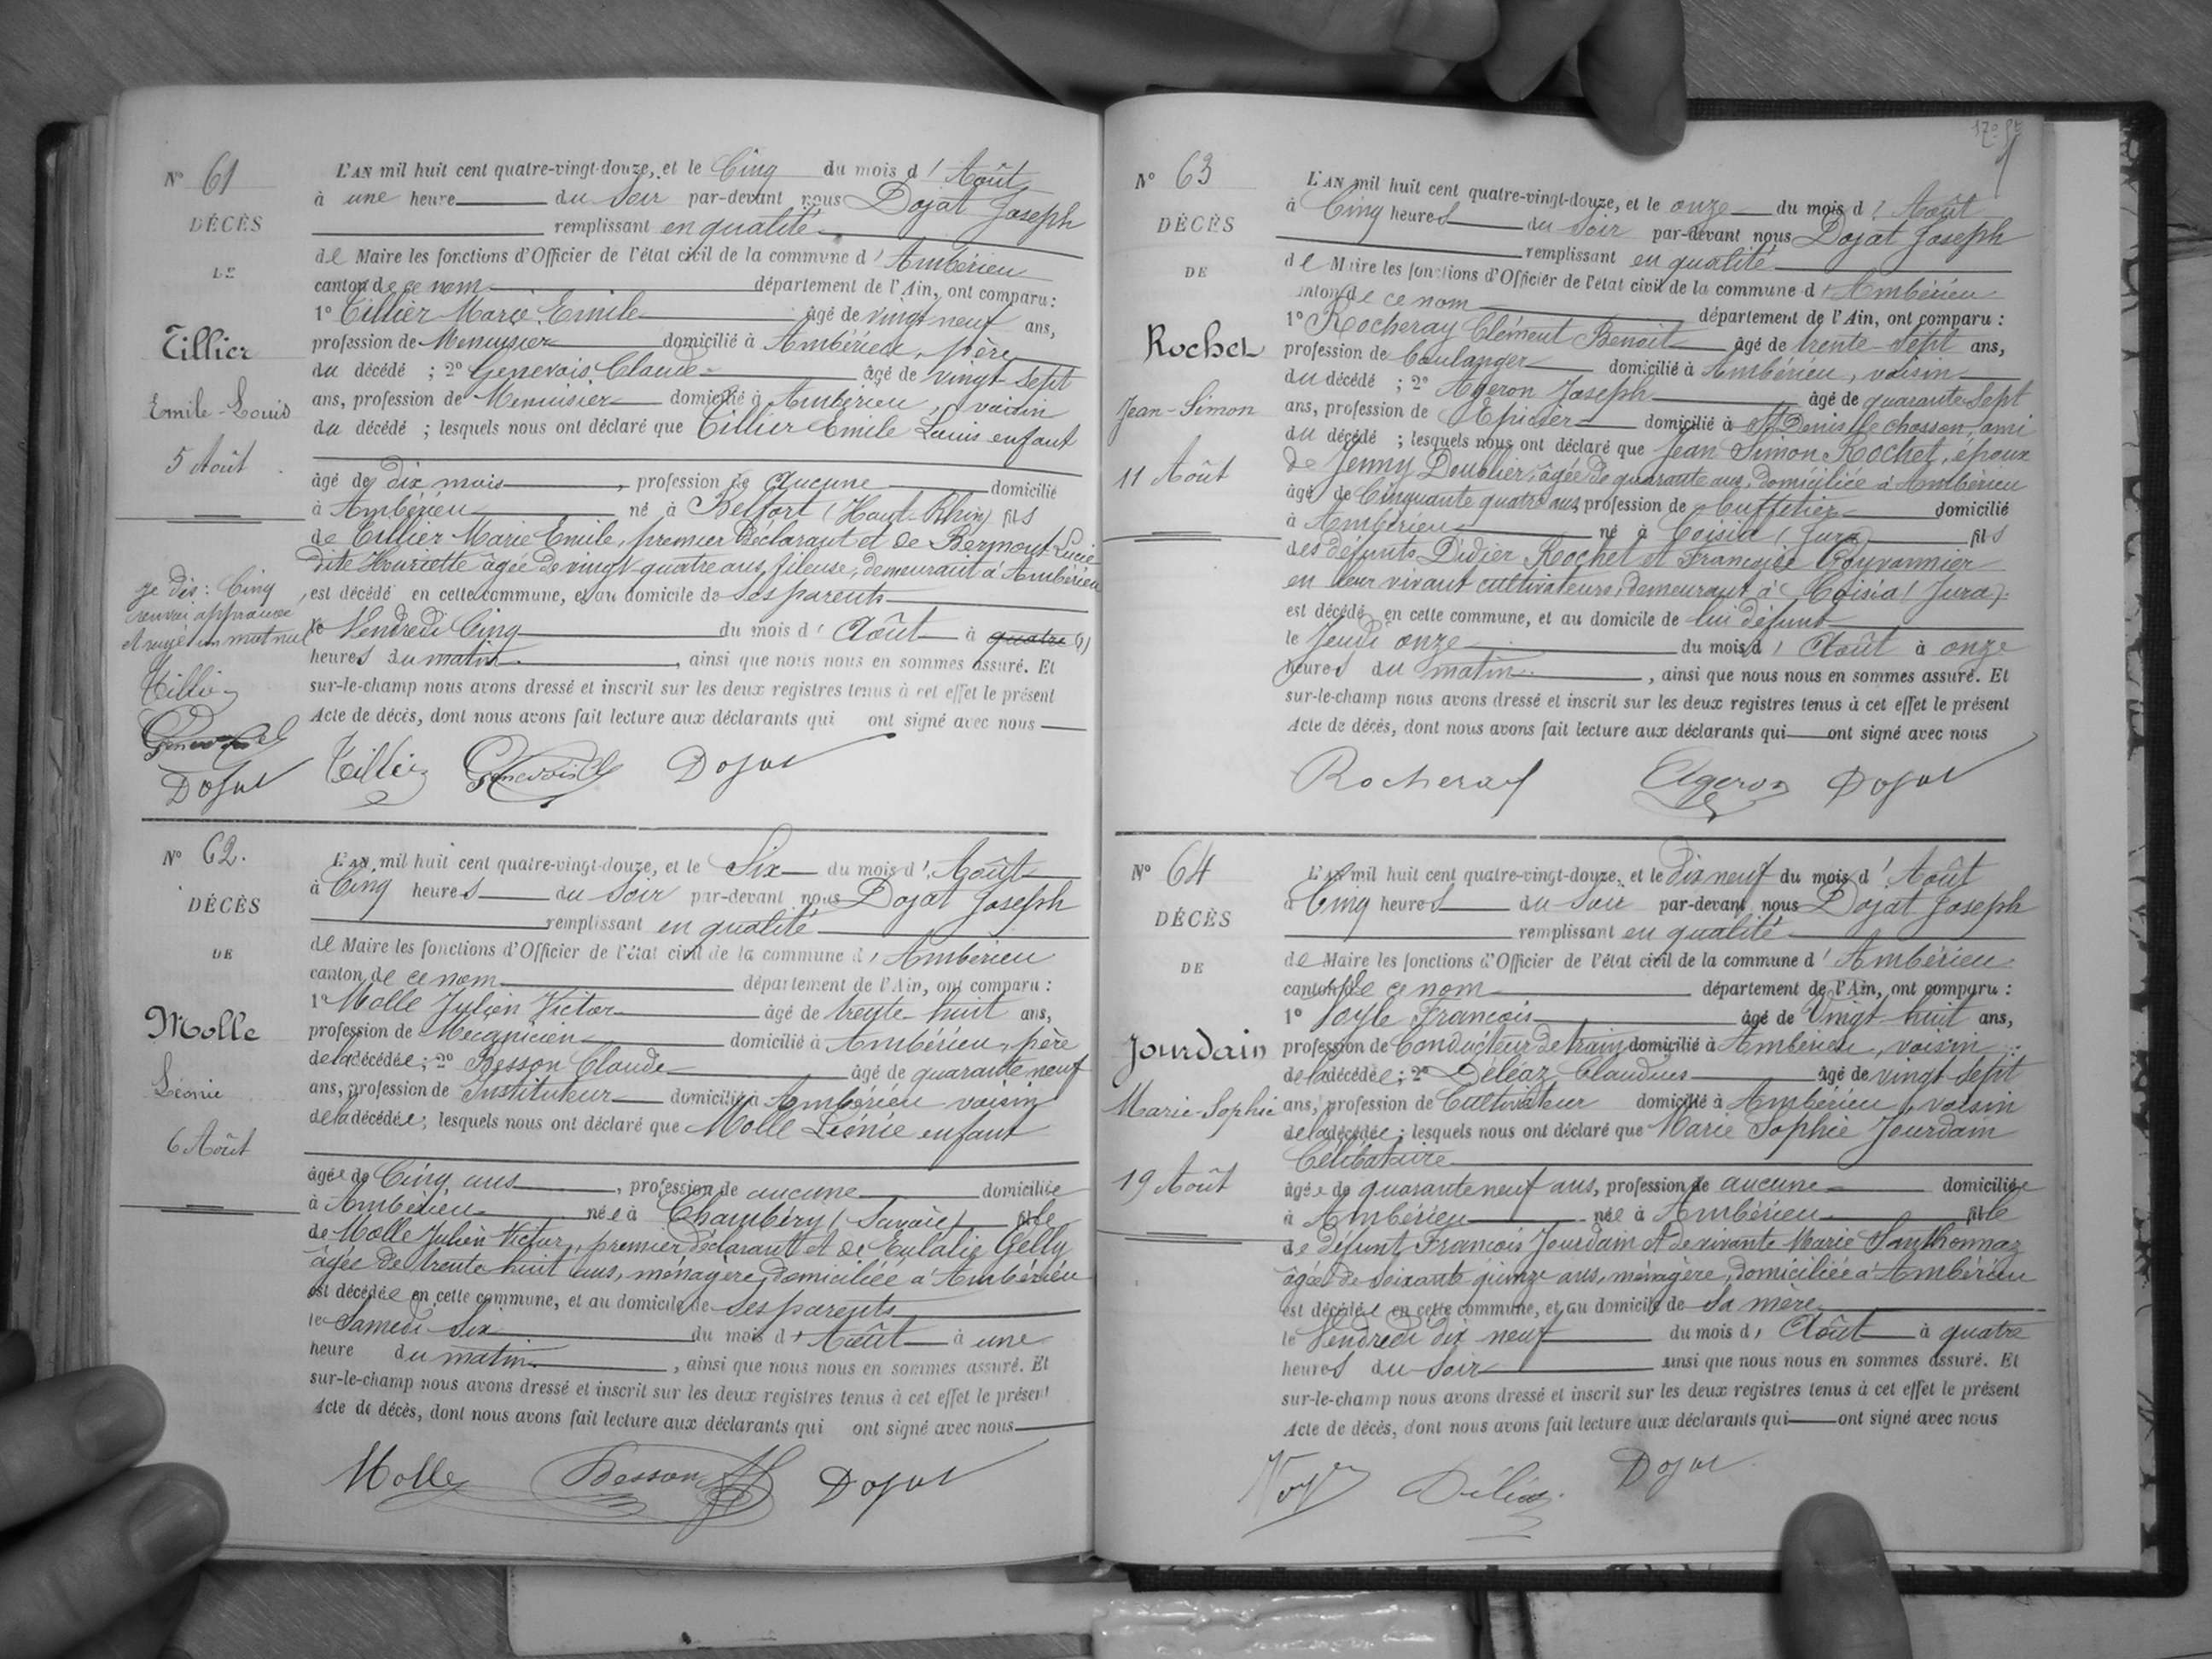 N° 61
DÉCÈS
DE
Tillier
Emile-Louis
5 Août
je dis : Cinq
renvoi approuvé
et rayé un mot nul
Tillier
Genevois
Dojat
L'AN mil huit cent quatre-vingt-douze, et le Cinq du mois d'Août
à une heure du Soir par-devant nous Dojat Joseph
remplissant en qualité
de Maire les fonctions d'Officier de l'état civil de la commune d'Ambérieu
canton de ce nom département de l'Ain, ont comparu :
1° Tillier Marie Emile âgé de vingt neuf ans,
profession de Menuisier domicilié à Ambérieu, père
du décédé ; 2° Genevois Claude âgé de vingt-sept
ans, profession de Menuisier domicilié à Ambérieu, voisin
du décédé ; lesquels nous ont déclaré que Tillier Emile Louis enfant
âgé de dix mois, profession de Aucune domicilié
à Ambérieu né à Belfort (Haut-Rhin) fils
de Tillier Marie Emile, premier déclarant et de Bermont Lucie
dite Henriette âgée de vingt-quatre ans, fileuse, demeurant à Ambérieu
est décédé en cette commune, et au domicile de ses parents
le Vendredi Cinq du mois d'Août à quatre
heures du matin, ainsi que nous nous en sommes assuré. Et
sur-le-champ nous avons dressé et inscrit sur les deux registres tenus à cet effet le présent
Acte de décès, dont nous avons fait lecture aux déclarants qui ont signé avec nous
Tillier Genevois Dojat
N° 62.
DÉCÈS
DE
Molle
Léonie
6 Août
L'AN mil huit cent quatre-vingt-douze, et le Six du mois d'Août
à Cinq heures du Soir par-devant nous Dojat Joseph
remplissant en qualité
de Maire les fonctions d'Officier de l'état civil de la commune d'Ambérieu
canton de ce nom département de l'Ain, ont comparu :
1° Molle Julien Victor âgé de trente-huit ans,
profession de Mecanicien domicilié à Ambérieu, père
de la décédée ; 2° Besson Claude âgé de quarante neuf
ans, profession de Instituteur domicilié à Ambérieu voisin
de la décédée ; lesquels nous ont déclaré que Molle Léonie enfant
âgée de Cinq ans, profession de aucune domiciliée
à Ambérieu née à Chambéry (Savoie) fille
de Molle Julien Victor, premier déclarant et de Eulalie Gelly
âgée de trente huit ans, ménagère, domiciliée à Ambérieu
est décédée en cette commune, et au domicile de ses parents
le Samedi Six du mois d'Août à une
heure du matin, ainsi que nous nous en sommes assuré. Et
sur-le-champ nous avons dressé et inscrit sur les deux registres tenus à cet effet le présent
Acte de décès, dont nous avons fait lecture aux déclarants qui ont signé avec nous
Molle Besson Dojat
N° 63
DÉCÈS
DE
Rochet
Jean-Simon
11 Août
L'AN mil huit cent quatre-vingt-douze, et le onze du mois d'Août
à Cinq heures du Soir par-devant nous Dojat Joseph
remplissant en qualité
de Maire les fonctions d'Officier de l'état civil de la commune d'Ambérieu
canton de ce nom département de l'Ain, ont comparu :
1° Rocheray Clément Benoit âgé de trente-sept ans,
profession de boulanger domicilié à Ambérieu, voisin
du décédé ; 2° Ageron Joseph âgé de quarante sept
ans, profession de Epicier domicilié à St Denis le chosson, ami
du décédé ; lesquels nous ont déclaré que Jean Simon Rochet, époux
de Jenny Doublier, âgée de quarante ans, domiciliée à Ambérieu
âgé de Cinquante quatre ans, profession de buffetier domicilié
à Ambérieu né à Coisia (Jura) fils
des défunts Didier Rochet et Françoise
en leur vivant cultivateurs, demeurant à Coisia (Jura)
est décédé en cette commune, et au domicile de lui défunt
le Jeudi onze du mois d'Août à onze
heures du matin, ainsi que nous nous en sommes assuré. Et
sur-le-champ nous avons dressé et inscrit sur les deux registres tenus à cet effet le présent
Acte de décès, dont nous avons fait lecture aux déclarants qui ont signé avec nous
Rocheray Ageron Dojat
N° 64
DÉCÈS
DE
Jourdain
Marie-Sophie
19 Août
L'AN mil huit cent quatre-vingt-douze, et le dix neuf du mois d'Août
à Cinq heures du Soir par-devant nous Dojat Joseph
remplissant en qualité
de Maire les fonctions d'Officier de l'état civil de la commune d'Ambérieu
canton de ce nom département de l'Ain, ont comparu :
1° François âgé de Vingt-huit ans,
profession de Conducteur de train domicilié à Ambérieu, voisin
de la décédée ; 2° Déléaz Claudius âgé de vingt-sept
ans, profession de Cultivateur domicilié à Ambérieu, voisin
de la décédée ; lesquels nous ont déclaré que Marie Sophie Jourdain
Célibataire
âgée de quarante neuf ans, profession de aucune domiciliée
à Ambérieu née à Ambérieu fille
de défunt François Jourdain et de vivante Marie Santhonnaz
âgée de soixante quinze ans, ménagère, domiciliée à Ambérieu
est décédée en cette commune, et au domicile de sa mère
le Vendredi dix neuf du mois d'Août à quatre
heures du Soir ainsi que nous nous en sommes assuré. Et
sur-le-champ nous avons dressé et inscrit sur les deux registres tenus à cet effet le présent
Acte de décès, dont nous avons fait lecture aux déclarants qui ont signé avec nous
Déléaz Dojat